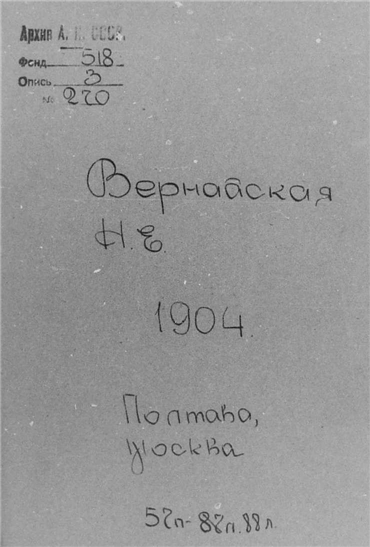 Архив А. Н. СССР.
Фонд 518
Опись 3
№ 270
Вернадская
Н. Е.
1904.
Полтава,
Москва
57п-87п. 88 л.